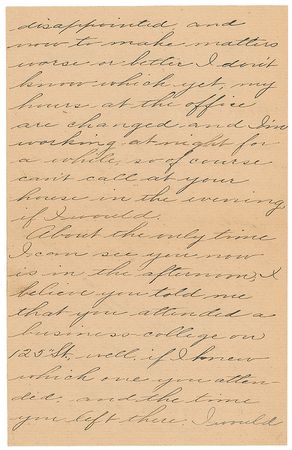 disappointed, and
now to make matters
worse or better I don't
know which yet, my
hours at the office
are changed and I'm
working at night for
a while, so of course
can't call at your
house in the evening
if I would.
About the only time
I can see you now
is in the afternoon, I
believe you told me
that you attended a
business college on
125" St., well, if I knew
which one you atten-
ded, and the time
you left there, I would